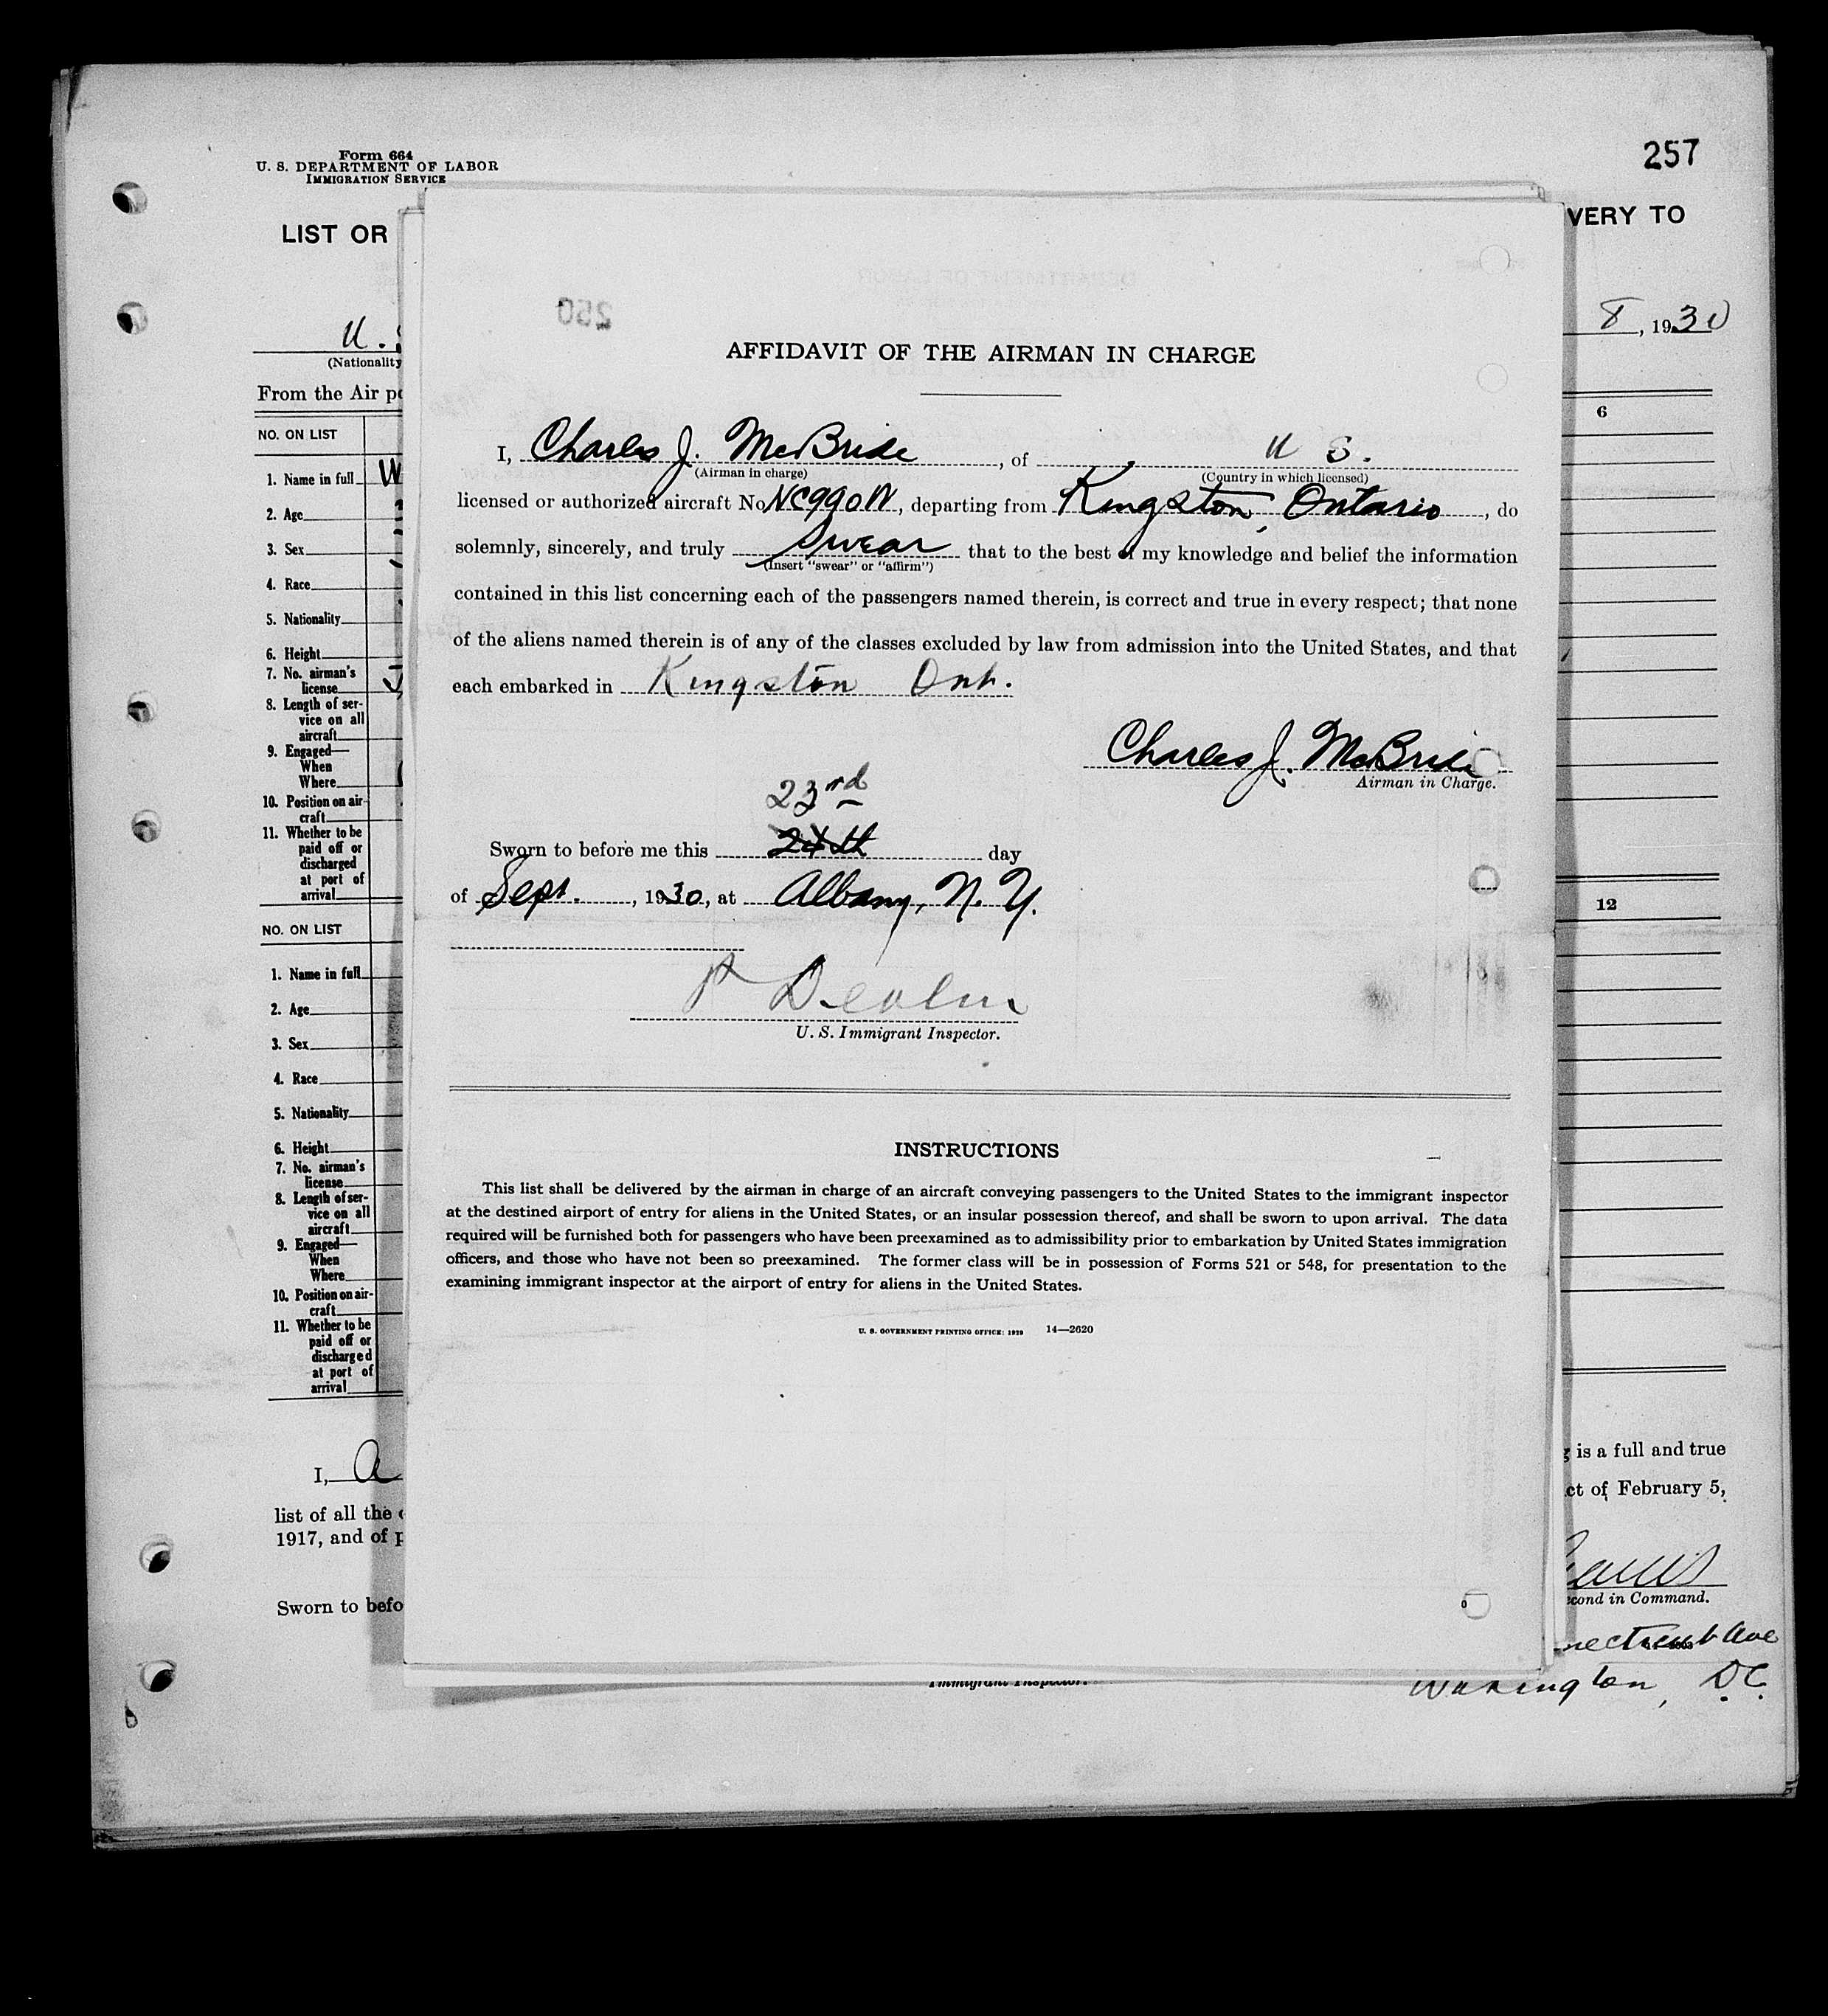 Form 664
U. S. DEPARTMENT OF LABOR
IMMIGRATION SERVICE
257
LIST OR
VERY TO
U.
8, 1930
(Nationality
From the Air po
NO. ON LIST
6
1. Name in full
2. Age
3. Sex
4. Race
5. Nationality
6. Height
7. No. airman's
license
8. Length of ser-
vice on all
aircraft
9. Engaged—
When
Where
10. Position on air-
craft
11. Whether to be
paid off or
discharged
at port of
arrival
NO. ON LIST
12
1. Name in full
2. Age
3. Sex
4. Race
5. Nationality
6. Height
7. No. airman's
license
8. Length of ser-
vice on all
aircraft
9. Engaged—
When
Where
10. Position on air-
craft
11. Whether to be
paid off or
discharged
at port of
arrival
I, a
g is a full and true
list of all the
ct of February 5,
1917, and of p
Sworn to befo
econd in Command.
Ave
Immigrant Inspector.
Washington, D.C.
250
AFFIDAVIT OF THE AIRMAN IN CHARGE
I, Charles J. McBride, of U S.
(Airman in charge) (Country in which licensed)
licensed or authorized aircraft No NC990N, departing from Kingston, Ontario, do
solemnly, sincerely, and truly Swear that to the best of my knowledge and belief the information
(Insert "swear" or "affirm")
contained in this list concerning each of the passengers named therein, is correct and true in every respect; that none
of the aliens named therein is of any of the classes excluded by law from admission into the United States, and that
each embarked in Kingston Ont.
Charles J. McBride
Airman in Charge.
23rd
Sworn to before me this 24th day
of Sept., 1930, at Albany, N. Y.
U. S. Immigrant Inspector.
INSTRUCTIONS
This list shall be delivered by the airman in charge of an aircraft conveying passengers to the United States to the immigrant inspector
at the destined airport of entry for aliens in the United States, or an insular possession thereof, and shall be sworn to upon arrival. The data
required will be furnished both for passengers who have been preexamined as to admissibility prior to embarkation by United States immigration
officers, and those who have not been so preexamined. The former class will be in possession of Forms 521 or 548, for presentation to the
examining immigrant inspector at the airport of entry for aliens in the United States.
U. S. GOVERNMENT PRINTING OFFICE: 1929 14—2620